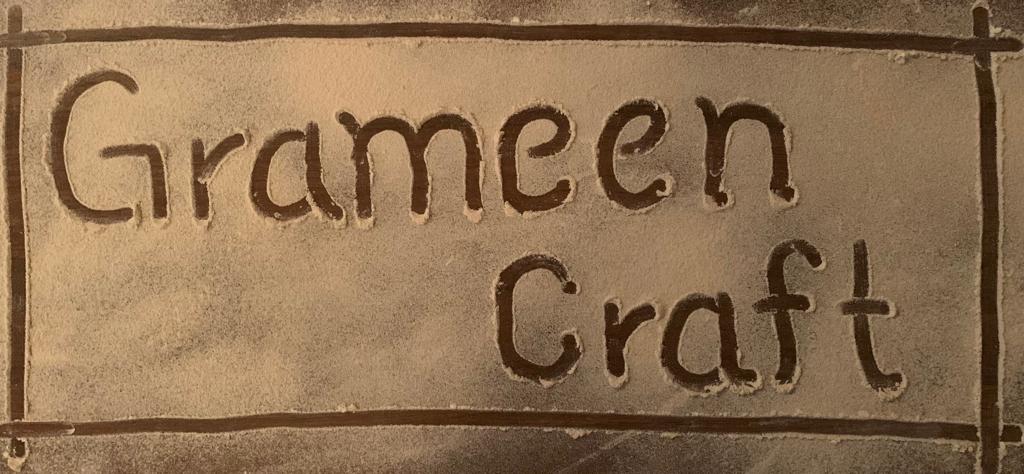 Grameen
Craft